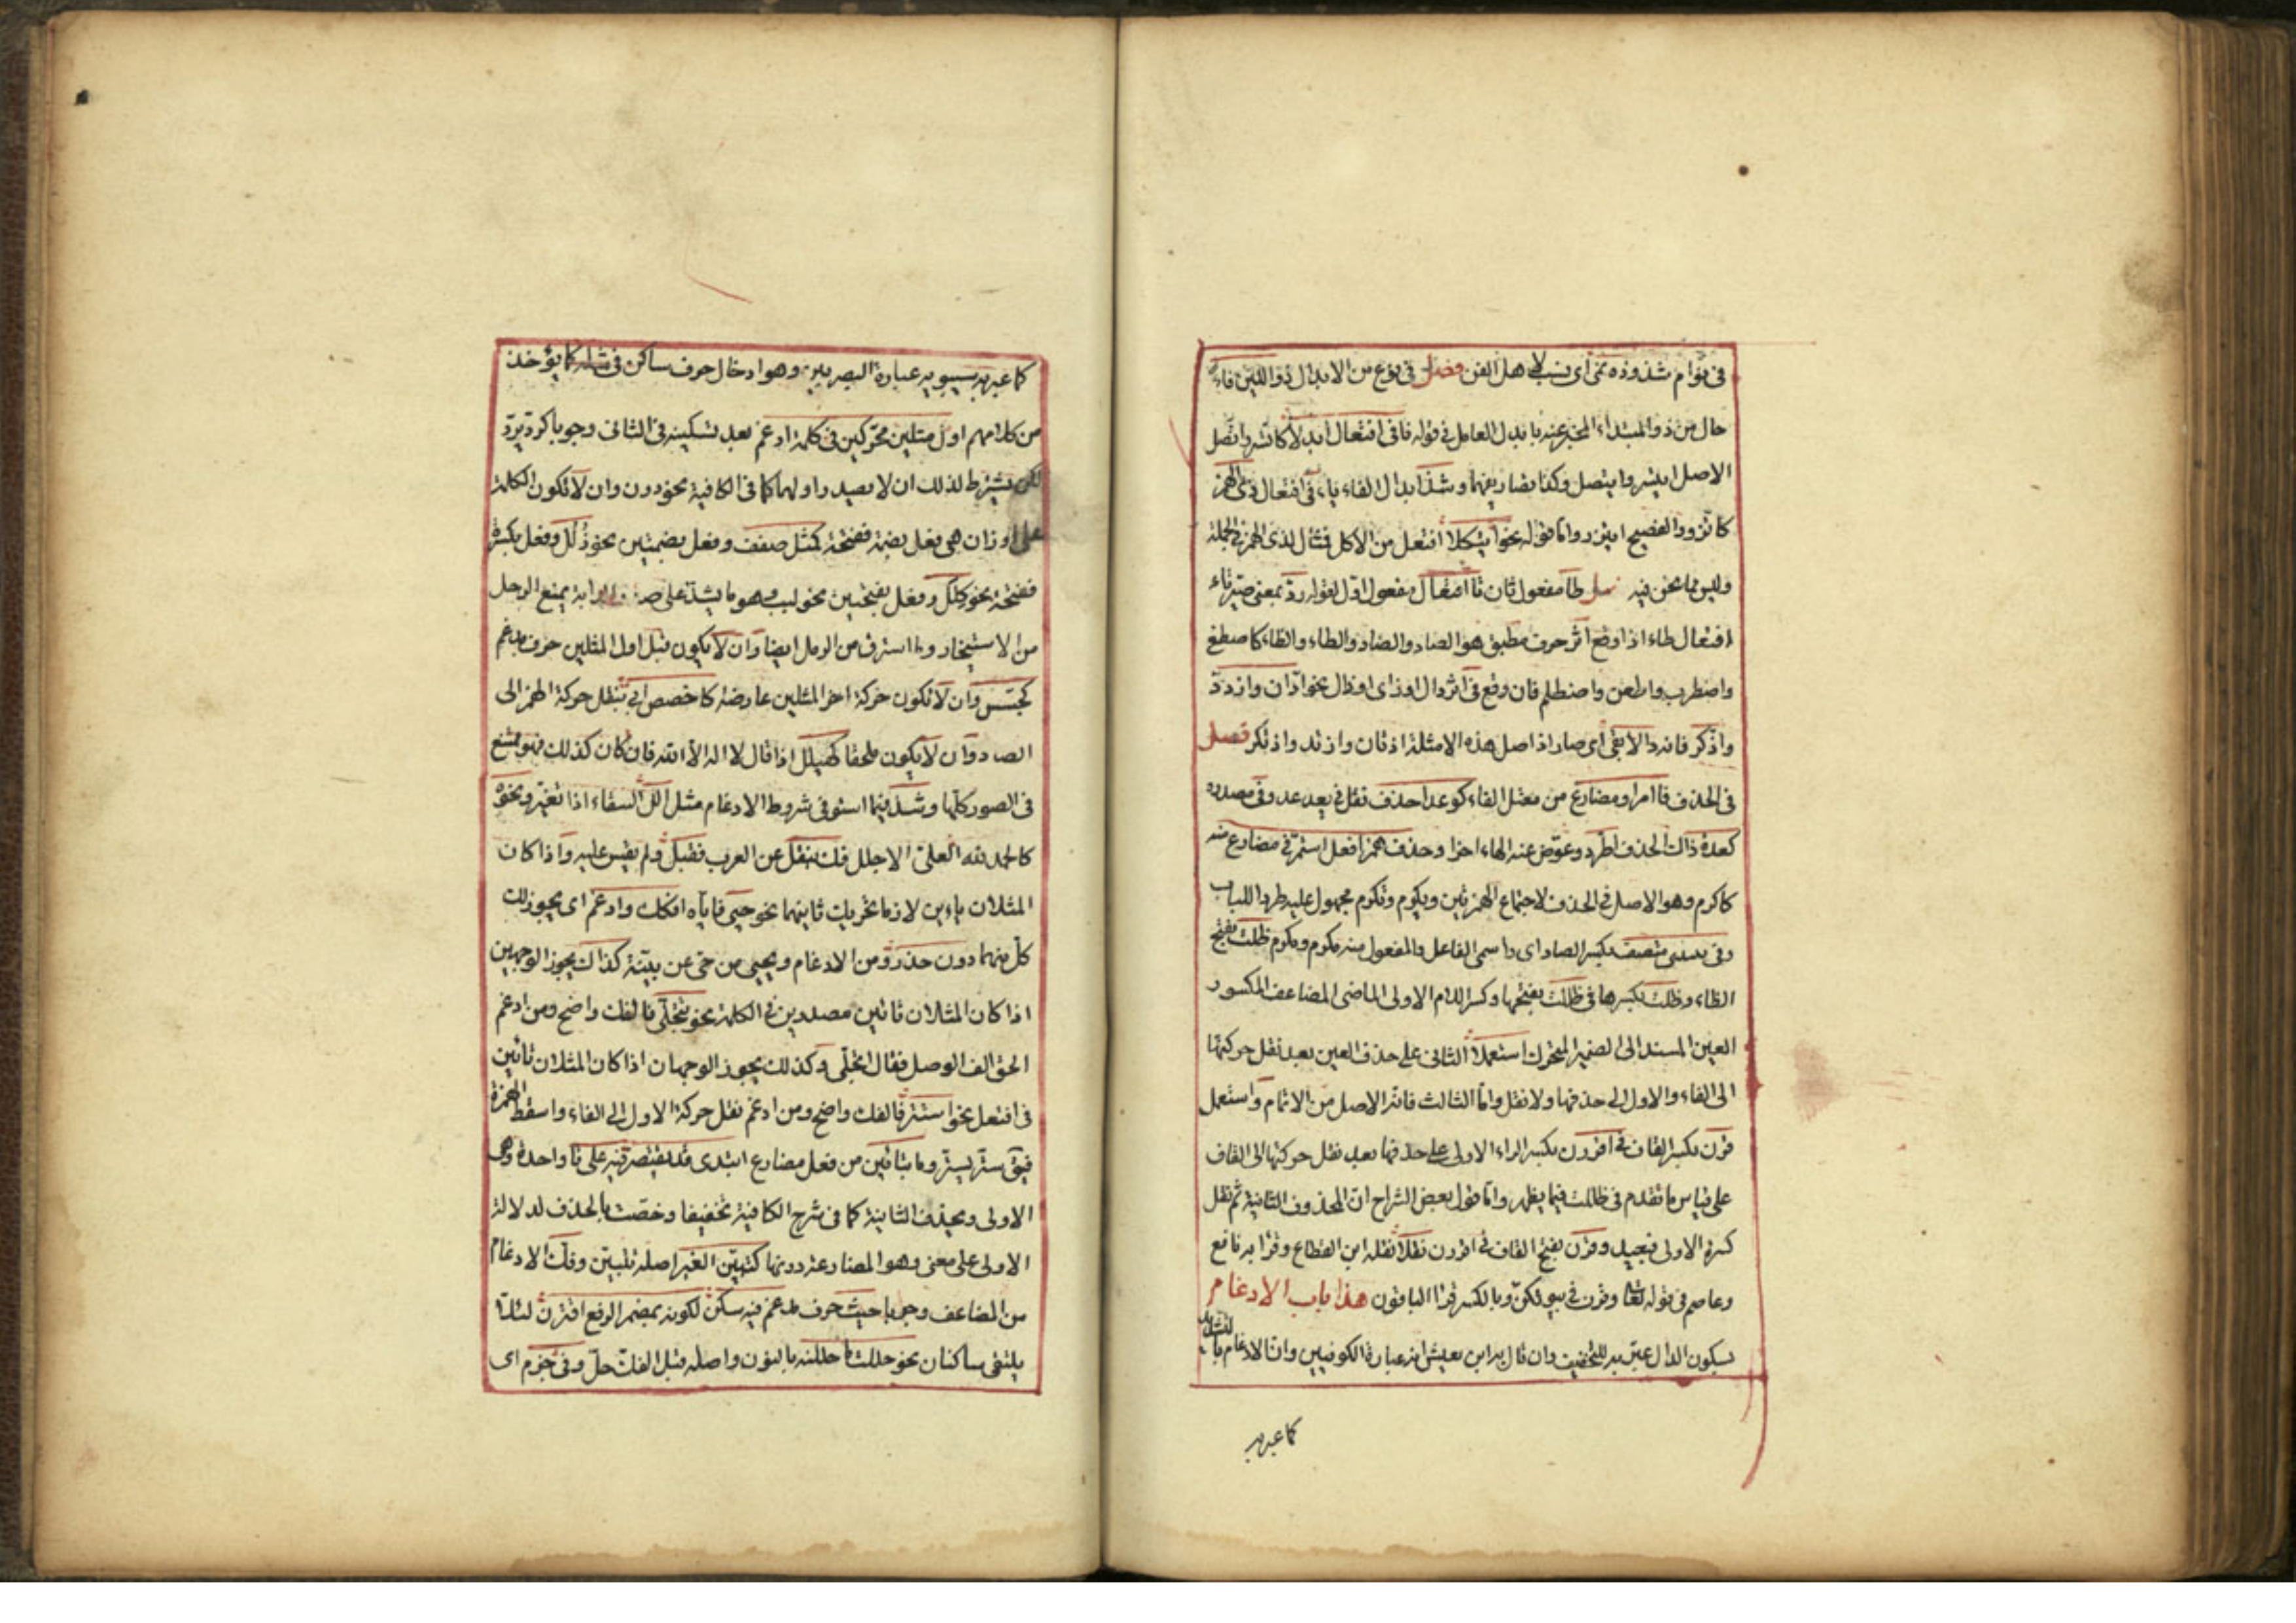 في نوام شذوذه نمى أي نسب لأهل الفن فصل في نوع من الابدال ذو اللين فاء
حال من ذو المبتداء المخبر عنه بابدل العامل في قوله تا في افتعال ابدلا كاتسر واتصل
الاصل ايتسر وايتصل وكذا تصاريفهما وشذ ابدال الفاء ياء في افتعال ذي الهمز
كاتزر والفصيح ايتزر واما قوله نحو ايتكلا افتعل من الاكل فمثال لذي الهمز في الجملة
وليس مما نحن فيه طا مفعول ثان تا افتعال مفعول اول لقوله رد بمعنى صير تاء
افتعال طاء اذا وقع اثر حرف مطبق هو الصاد والضاد والطاء والظاء كاصطفى
واضطرب واطعن واضطلم فان وقع في اثر دال او زاى او ذال نحو ادان وازدد
وادكر فانه دالا بقى أي صار اذ اصل هذه الامثلة ادتان وازتد واذتكر فصل
في الحذف فا امر او مضارع من معتل الفاء كوعد احذف نقل في يعد عد وفي مصدره
كعدة ذاك الحذف اطرد وعوض عنه الهاء اخرا وحذف همز افعل استمر في مضارع منه
كاكرم وهو الاصل في الحذف لاجتماع الهمزتين ويكرم وتكرم مجهول عليه طردا للباب
وفي بنيتى متصف بكسر الصاد اى واسمى الفاعل والمفعول منه مكرم ومكرم ظلت بفتح
الظاء وظلت بكسرها في ظللت بفتحها وكسر اللام الاولى الماضى المضاعف المكسور
العين المسند الى الضمير المتحرك استعملا الثاني على حذف العين بعد نقل حركتها
الى الفاء والاول الى حذفها ولا نقل واما الثالث فانه الاصل من الاتمام واستعمل
قرن بكسر القاف في اقررن بكسر الراء الاولى على حذفها بعد نقل حركتها الى القاف
على قياس ما تقدم في ظللت فيما يظهر واما قول بعض الشراح ان المحذوف الثانية ثم نقل
كسرة الاولى فبعيد وقرن بفتح القاف في اقررن نقلا نقله ابن القطاع وقرا به نافع
وعاصم في قوله تعا وقرن في بيوتكن وبالكسر قرا الباقون هذا باب الادغام
بسكون الدال عبر به للتخفيف وان قال ابن يعيش انه عبارة الكوفيين وان الادغام بالتشديد
كما عبر به
كما عبر به سيبويه عبارة البصريين وهو ادخال حرف ساكن في مثله كما يؤخذ
من كلامهم اول مثلين محركين في كلمة ادغم بعد تسكينه في الثاني وجوبا كرد يرد
لكن يشترط لذلك ان لا يصدر اولهما كما في الكافية نحو ددن وان لا تكون الكلمة
على اوزان هي فعل بضمة ففتحة كمثل صفف وفعل بضمتين نحو ذلل وفعل بكسرة
ففتحة نحو كلل وفعل بفتحتين نحو لبب وهو ما يشد على الدابة يمنع الرحل
من الاستيخار وما استرق من الرمل ايضا وان لا يكون قبل اول المثلين حرف مدغم
كجسس وان لا تكون حركة اخر المثلين عارضة كاخصص ابى بنقل حركة الهمز الى
الصاد وان لا يكون ملحقا كهيلل اذا قال لا اله الا الله فان كان كذلك فهو ممتنع
في الصور كلها وشذ فيما استوفى شروط الادغام مثل الل السقاء اذا تغير ونحوه
كالحمد لله العلي الاجلل فك بنقل عن العرب فقبل ولم يقس عليه واذا كان
المثلان ياءين لازما تحريك ثانيهما نحو حيي فايآه افكك وادغم اى يجوز لك
كل منهما دون حذر ومن الادغام ويحيى من حي عن بينة كذاك يجوز الوجهين
اذا كان المثلان تاءين مصدرين في الكلمة نحو تتجلى فالفك واضح ومن ادغم
الحق الف الوصل فقال اتجلى وكذلك يجوز الوجهان اذا كان المثلان تاءين
في افتعل نحو استتر فالفك واضح ومن ادغم نقل حركة الاول الى الفاء واسقط الهمزة
فيق ستر يستر وما بتاءين من فعل مضارع ابتدى قد يقتصر فيه على تا واحدة وهى
الاولى ويحذف الثانية كما في شرح الكافية تخفيفا وخصت بالحذف لدلالة
الاولى على معنى وهو المضارعة دونها كتبين العبر اصله تتبين وفك الادغام
من المضاعف وجوبا حيث حرف مدغم فيه سكن لكونه بمضمر الرفع اقترن لئلا
يلتقى ساكنان نحو حللت ما حللنه بالنون واصله قبل الفك حل وفي جزم اى